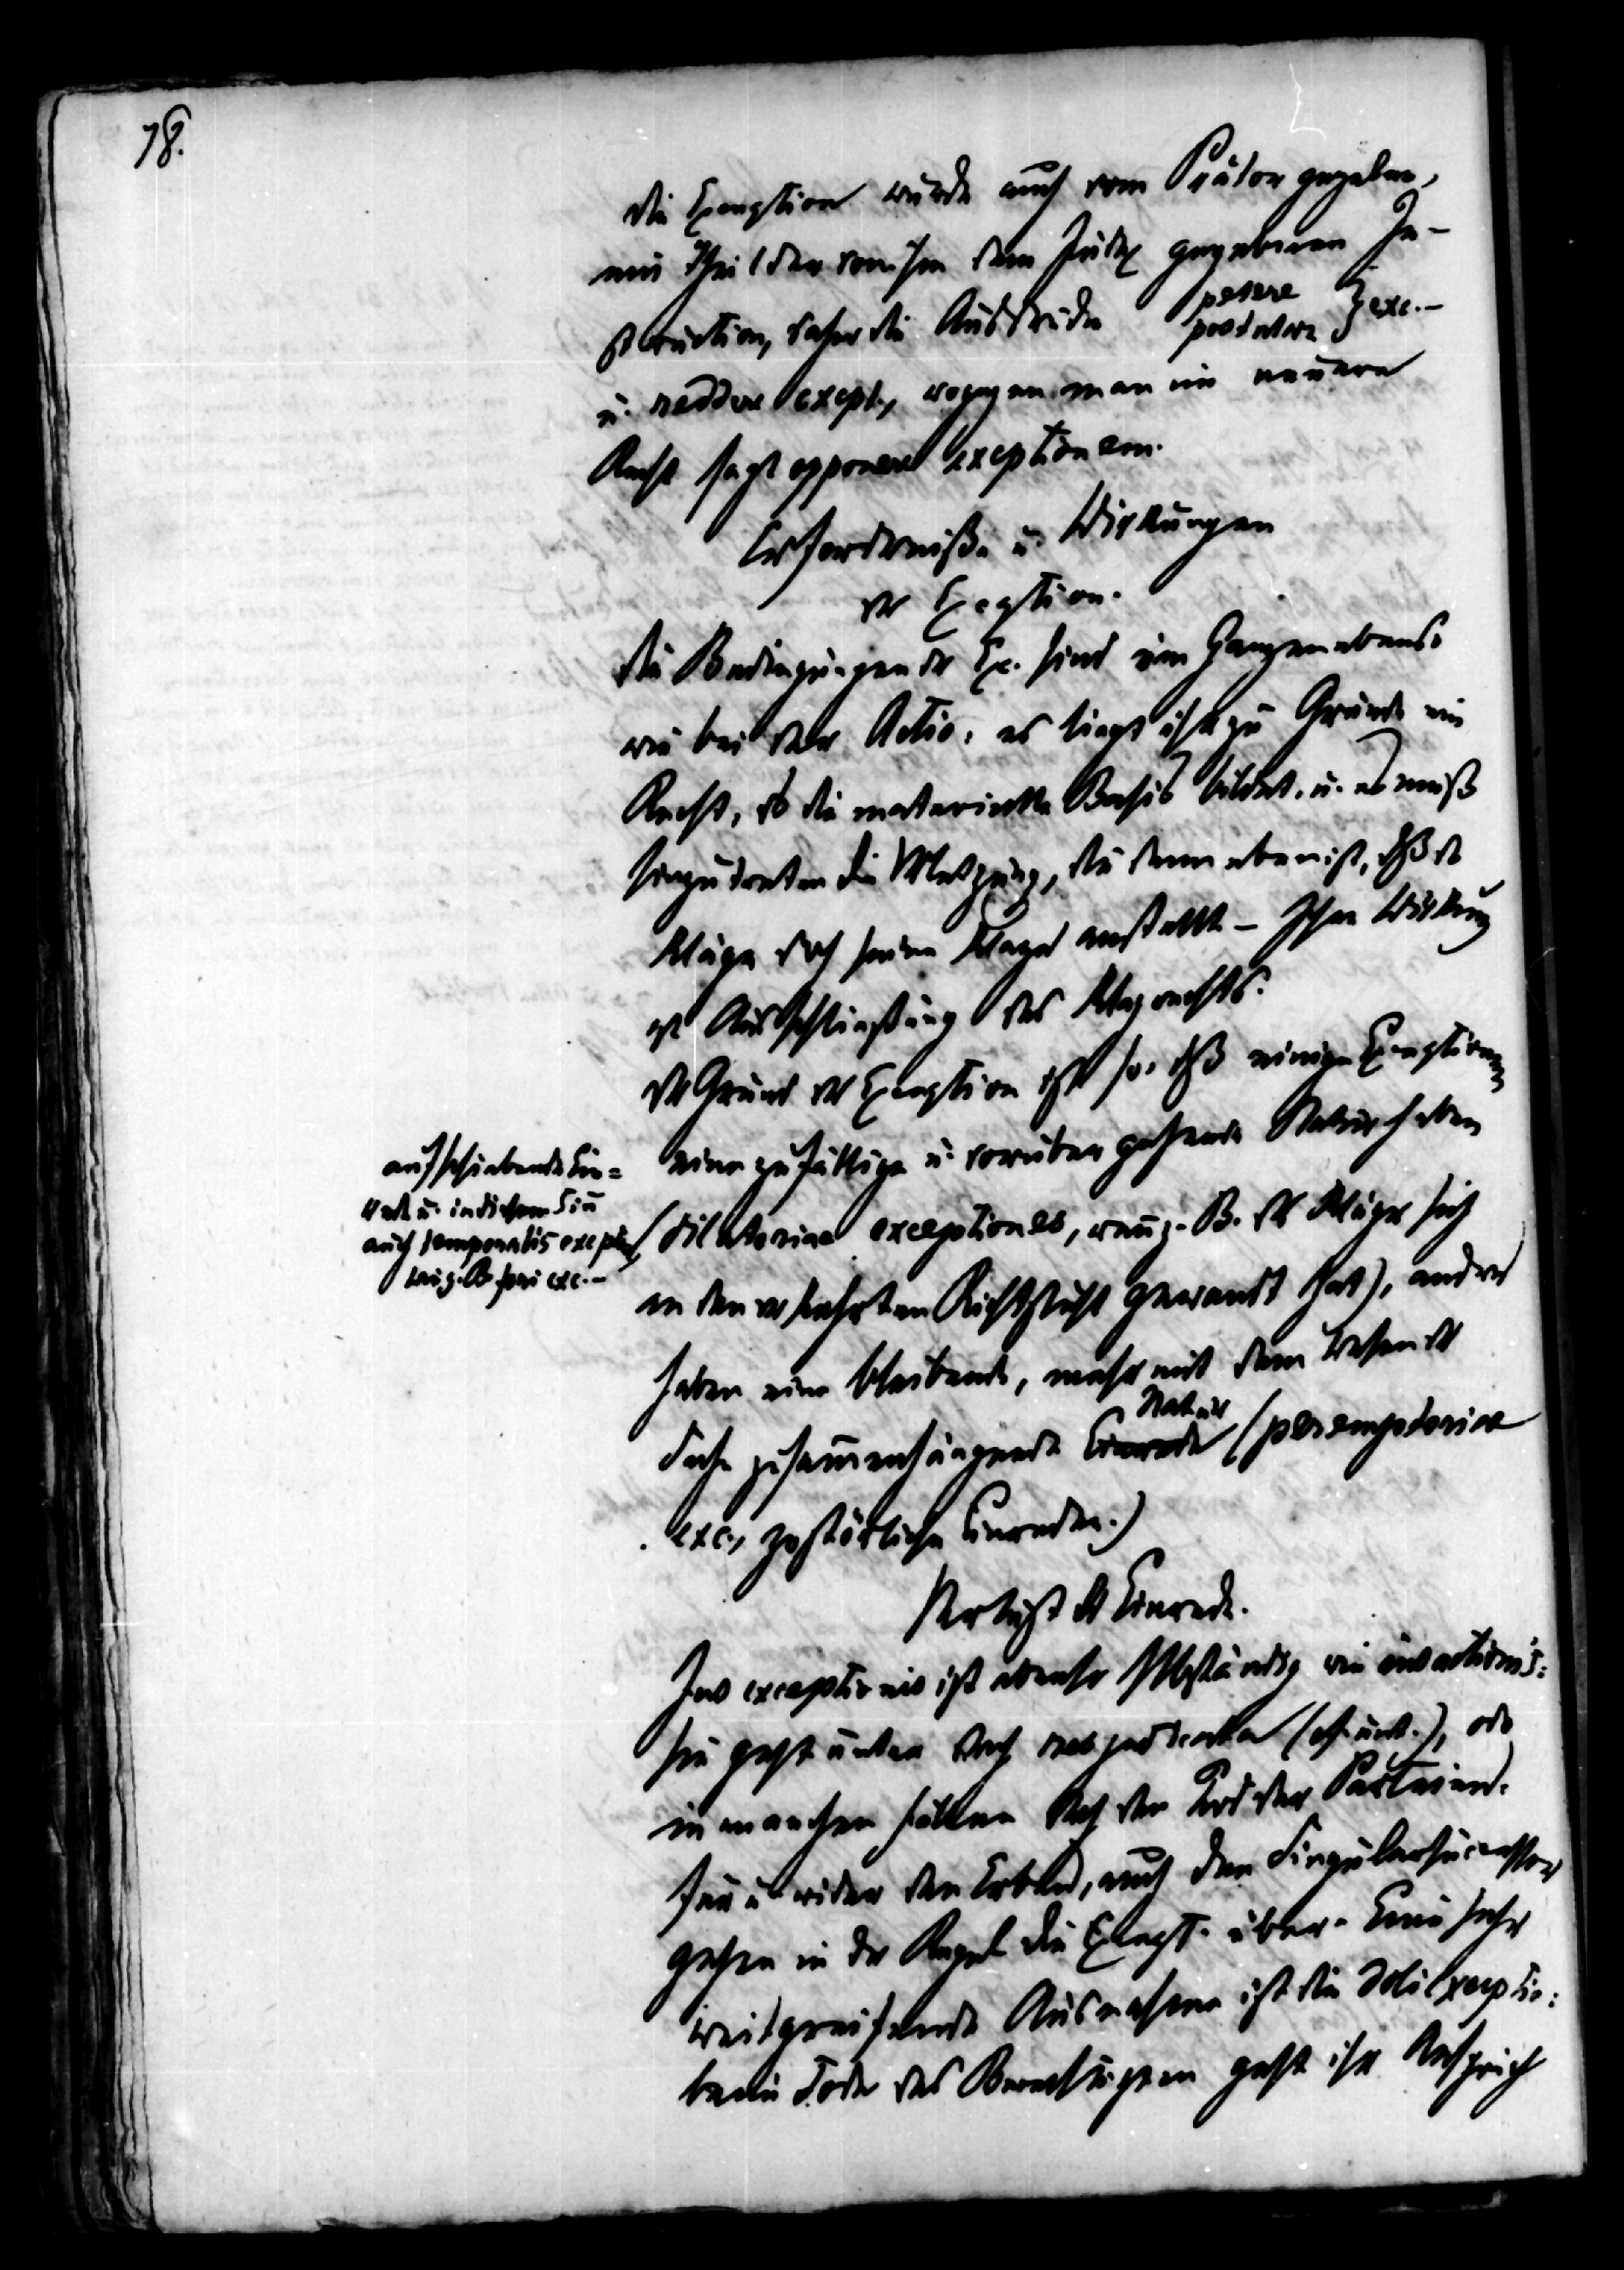 78.
die Exception wurde auch vom Prätor gegeben,
ein Theil der von ihm dem Judex gegebenen In-
struction, daher die Ausdrücke petere postulare } exc.-
u. reddere except., wogegen man im neuern
Recht sagt opponere exceptionem.
Erforderniße u. Wirkungen
der Exception.
Die Bedingungen der Ex. sind im Ganzen ebenso
wie bei der Actio, es liegt ihr zu Grunde ein
Recht, das die materielle Basis bildet, u. es muß
hinzutreten die Verletzung, die denn eben ist, daß der
Kläger doch seine Klage anstellt - Ihre Wirkung
ist Ausschließung des Klagrechts.
Der Grund der Exception ist so, daß einige Exceptionen
eine zufällige u. vorübergehende Natur haben
(dilatoriae exceptiones, wenn z. B. der Kläger sich
an den verkehrten Richtstuhl gewandt hat), andere
haben eine bleibende, mehr mit dem Wesen der
Sache zusammenhängende Einrede Natur (peremptoriae
exc., zerstörliche Einreden.)
aufschiebende Ein-
rede u. in diesem Sinn
auch temporalis exceptio
wie z. B. fori exc.-
Verlust der Einrede.
Jus exceptionis ist ebenso selbständig wie ius actionis:
sie geht unter durch res judicata (cf. unt.), oder
in manchen Fällen durch den Tod der Parteien.
Für u. wider den Erben, auch den Singularsuccessor
gehen in der Regel die Except. über. Eine sehr
weitgreifende Ausnahme ist die doli exceptio:
beim Tode des Berechtigten geht ihr Anspruch